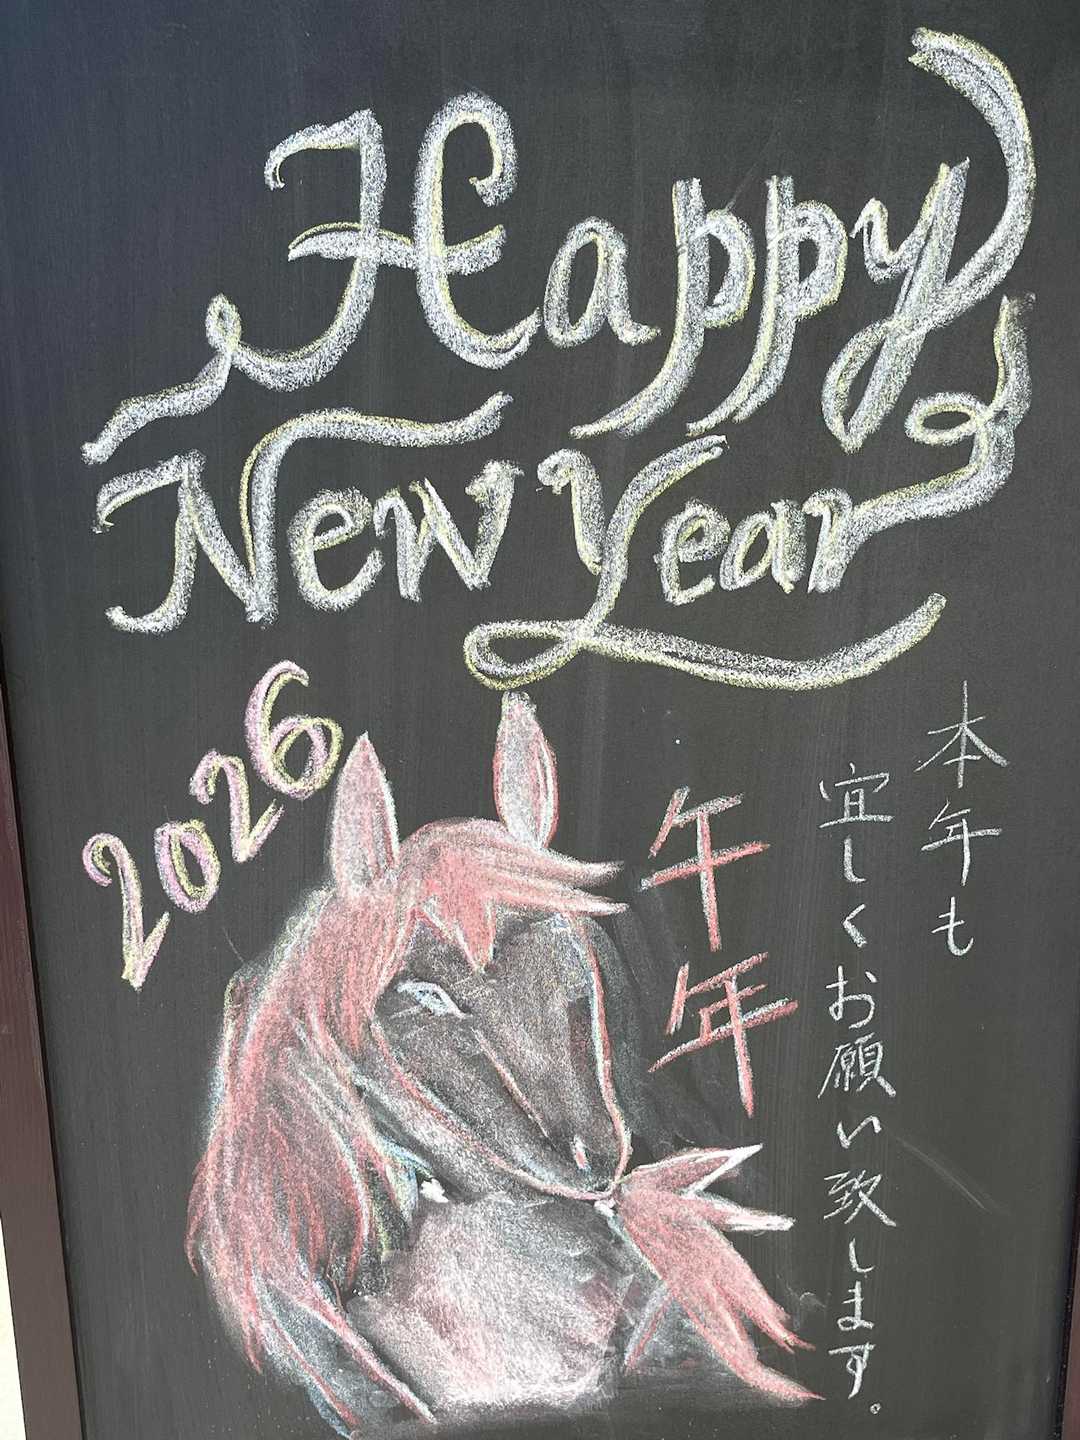 Happy
New Year
2026
本年も
宜しくお願い致します。
午年